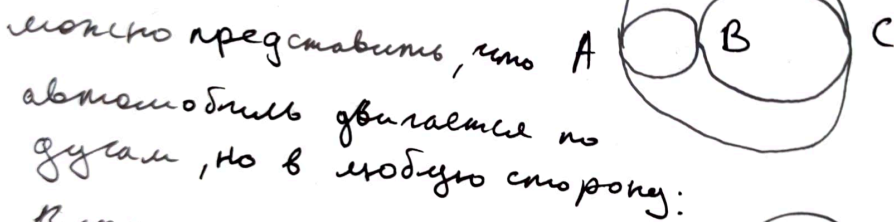 можно представить, что A B C
автомобиль двигается по
дугам, но в любую сторону: